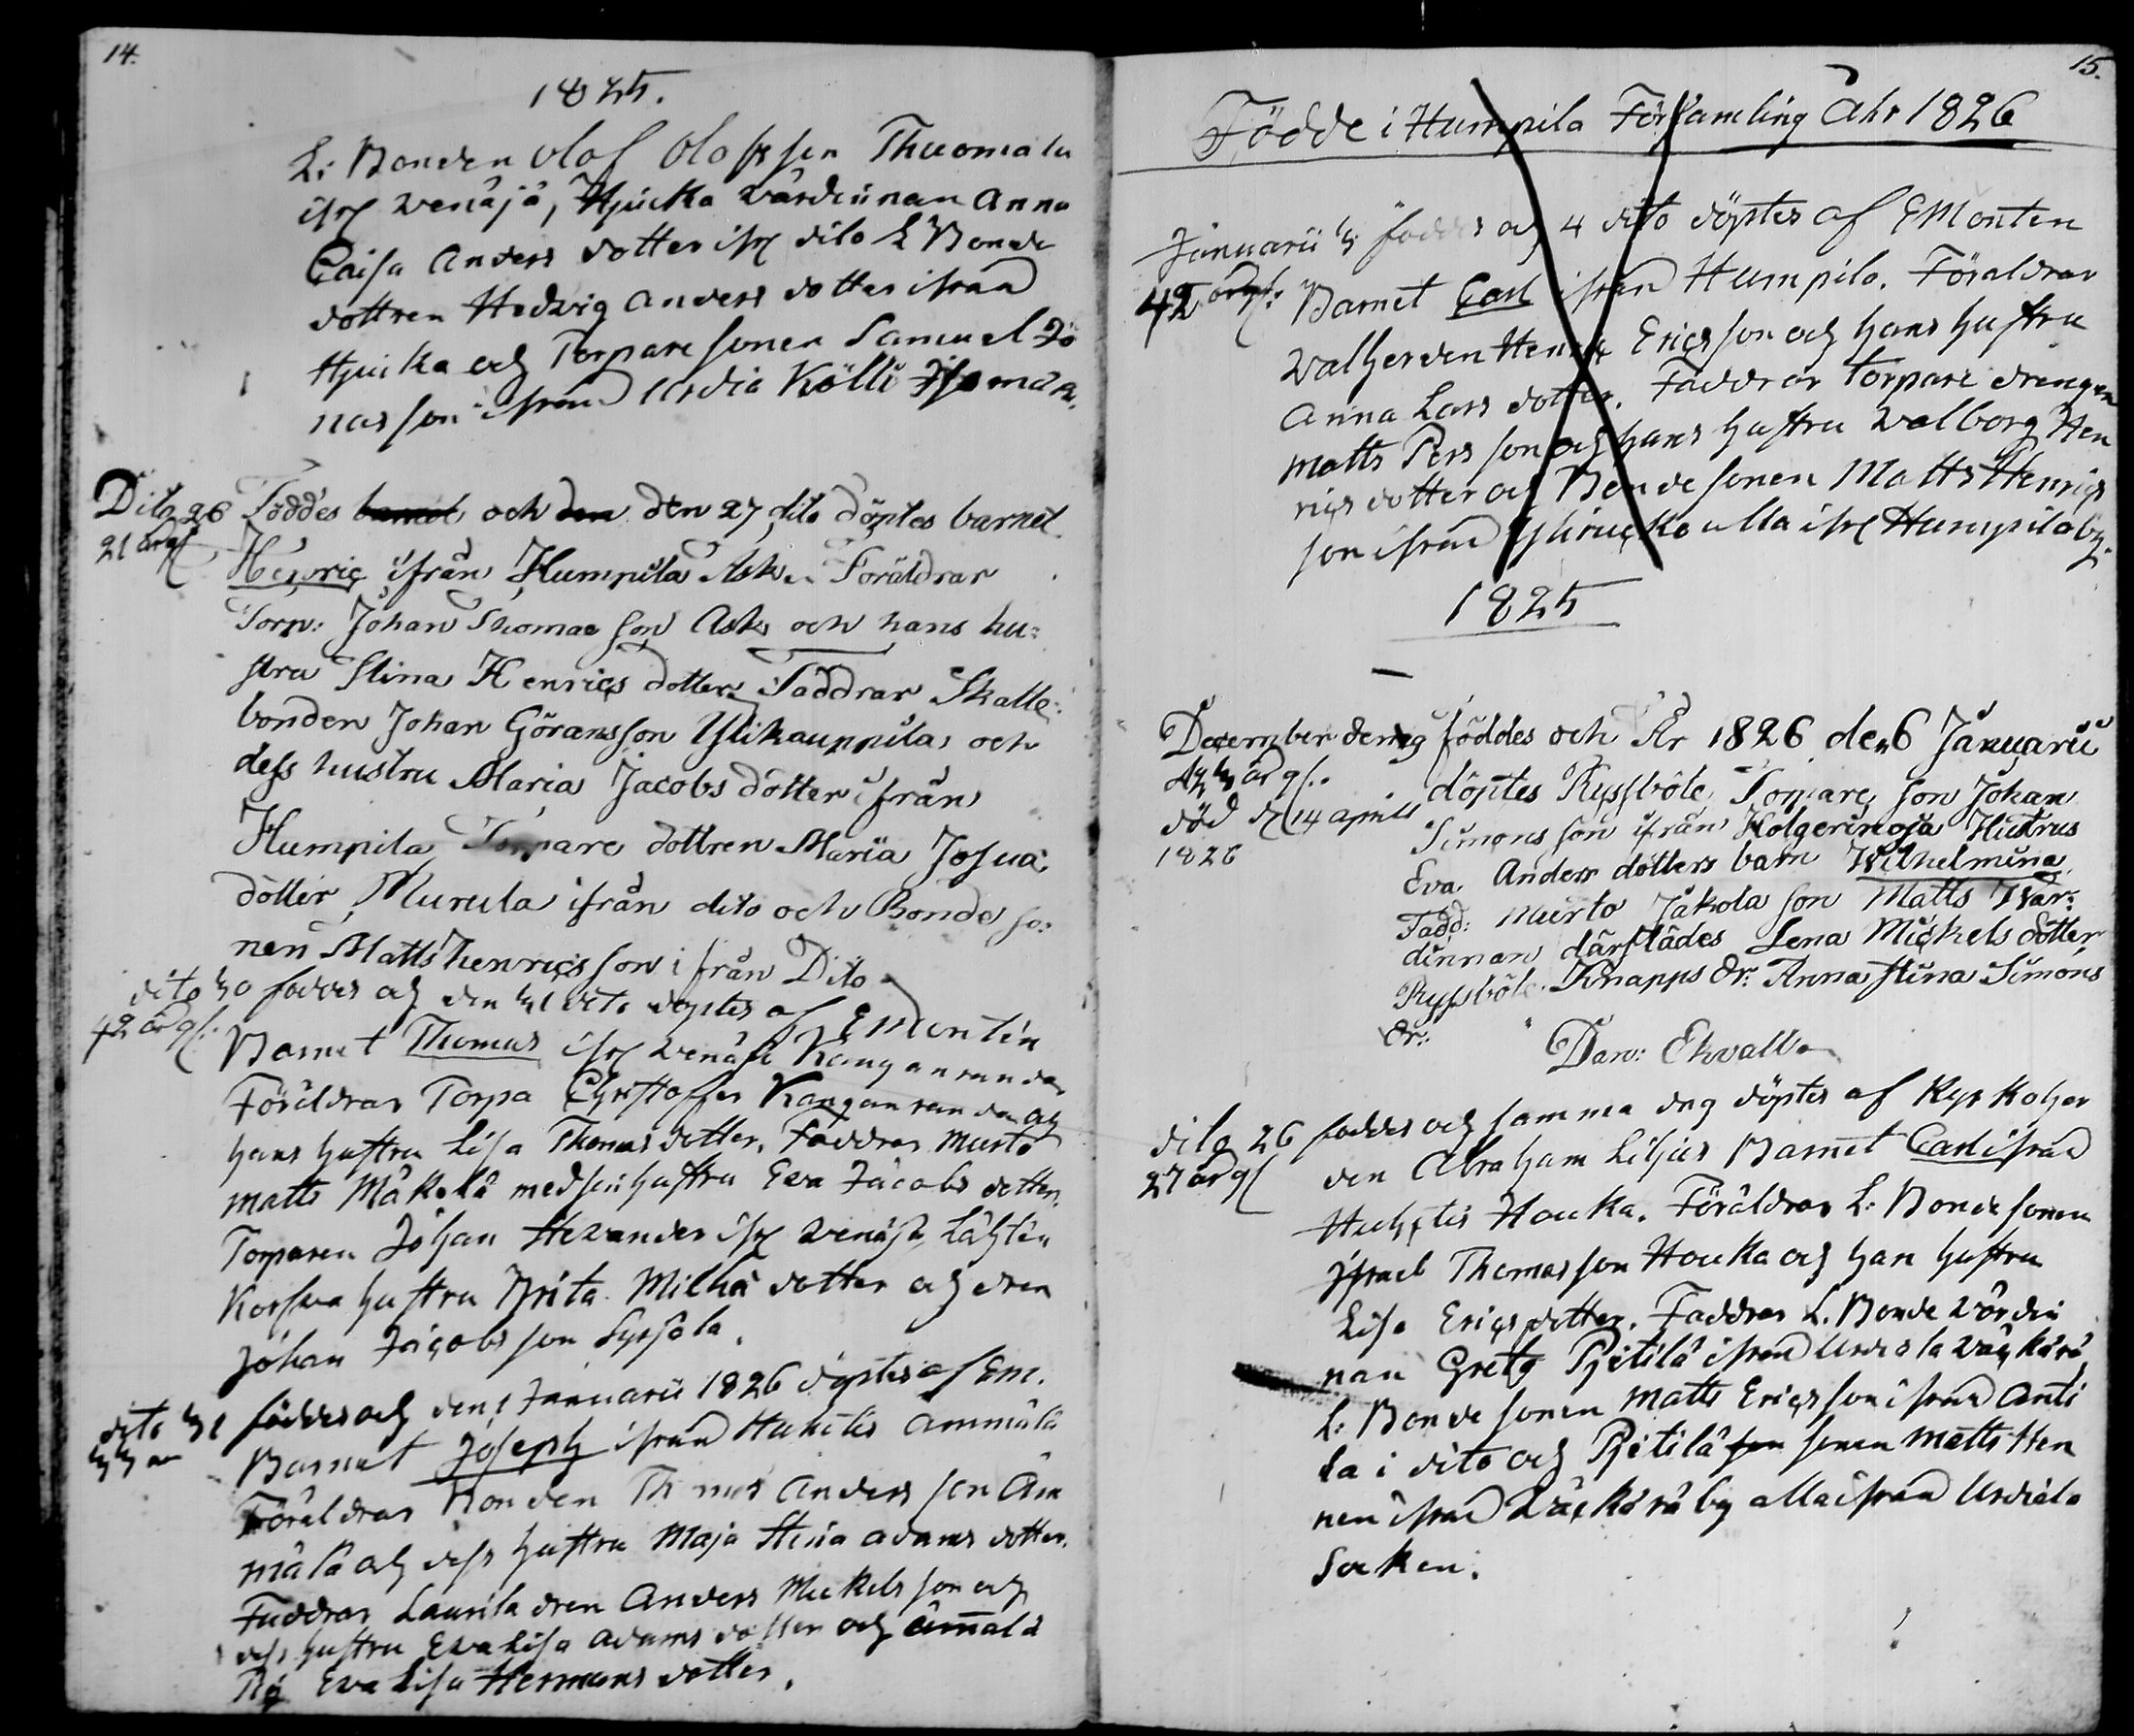 14.
1825.
L: Bonden Olof Olofsson Thuomala
ifr Wenäjä, Hjuicka Wärdinnan Anna
Caisa Anders dotter ifr dito L Bonde
dottren Hedvig Anders dotter ifrån
Hjuicka och Torpare sonen Samuel Jo
nas son ifrån Urdia Kölli
Dito 26 Föddes barnet och den den 27 dito döptes barnet
21 år gl Henric ifrån Humpila Ask. Föräldrar
Torp: Johan Thomas son Ask och hans hu:
stru Stina Henrics dotter Faddrar Skatte:
bonden Johan Göransson Ylikauppila och
dess hustru Maria Jacobs dotter ifrån
Humpila Torpare dottren Maria Josua
dotter Murula ifrån dito och Bonde so:
nen Matts Henrics son ifrån Dito
dito 30 föddes och den 31 dito döptes af E Montin
42 år gl. Barnet Thomas ifr Wenäjä Kanganranda
Föräldrar Torpa Christoffer Kanganranda och
hans hustru Lisa Thomas dotter. Faddrar Murto
Matts Mäkelä med sin hustru Eva Jacobs dotter.
Torparen Johan Stevander ifr Wenäjä Lähten
Korfwa hustru Brita Michä dotter och dren
Johan Jacobs son Syrjälä.
dito 31 föddes och den 1 Januarii 1826 döptes af EM.
33 år Barnet Joseph ifrån Huhtis Ammälä
Föräldrar Bonden Thomas Anders son Äm
mälä och dess hustru Maja Stina Adams dotter.
Faddrar Laurila dren Anders Mickels son och
dess hustru Eva Lisa Adams dotter och Ämmälä
Pig Eva Lisa Hermans dotter.
15.
Födde i Humpila Församling Åhr 1826
Januarii 3 föddes och 4 dito döptes af E Monten
42 år gl. Barnet Carl ifrån Humpila. Föräldrar
Walherden Henric Ericsson och hans hustru
Anna Lars dotter. Faddrar Torpare drengen
Matts Pers son och hans hustru Walborg Hen
rics dotter och Bonde sonen Matts Henrics
son ifrån alla ifr Humpila by.
1825
December den 9 föddes och År 1826 den 6 Januarii
43 år gl. döptes Ryssböle Torpare son Johan
död d 14 April Simons son ifrån Kolgerinoja Hustrus
1826 Eva Anders dotters barn Wilhelmina
Fadd: Murto Jakola son Matts Wär:
dinnan därstädes Lena Mickels dotter
Ryssböle Knapps dr: Anna Stina Simons
dr:
Dan: Ekvall
dito 26 föddes och samma dag döptes af Kyrkoher
27 år gl den Abraham Liljus Barnet Carl ifrån
Huhtis Houka. Föräldrar L: Bonde sonen
Israel Thomas son Houka och han hustru
Lisa Erics dotter. Faddrar L. Bonde Wärdin
nan Greta Pietilä ifrån Urdiala Wäckärä
L: Bonde sonen Matts Ericsson ifrån Anti
la i dito och Pietilä son sonen Matts Hen
nen ifrån Wäckärä by alla ifrån Urdiala
Socken.